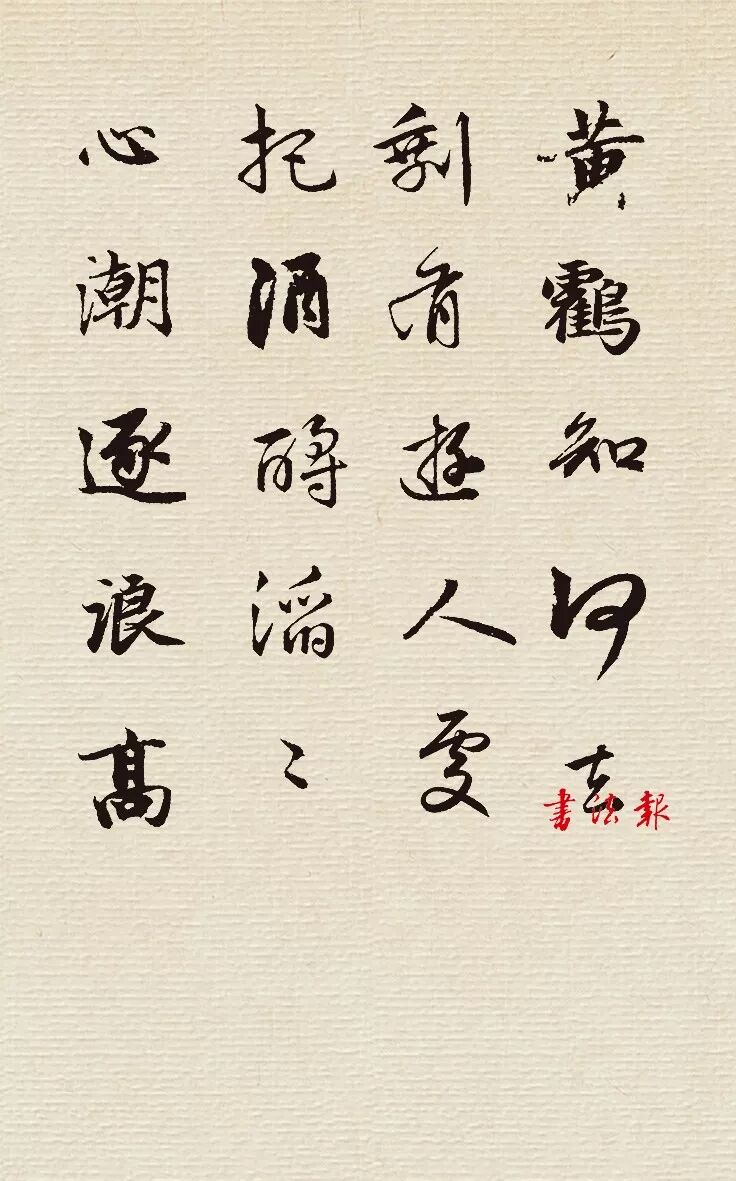 黄鶴知何去
剩有遊人處
把酒酹滔〻
心潮逐浪高
書法報